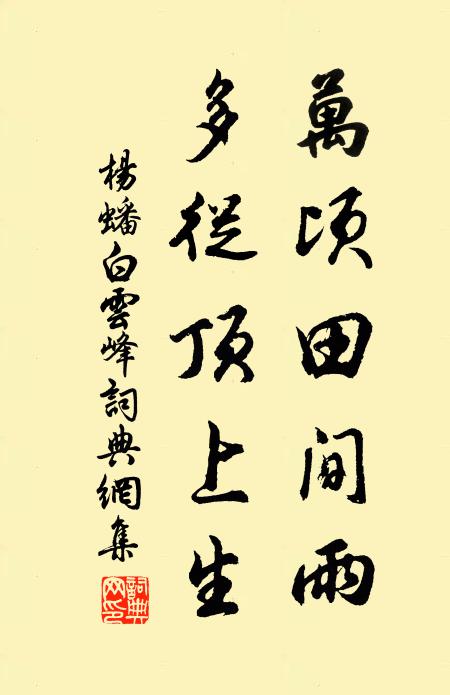 萬頃田間雨
多從頂上生
楊蟠白雲峰詞典網集
詞典網印